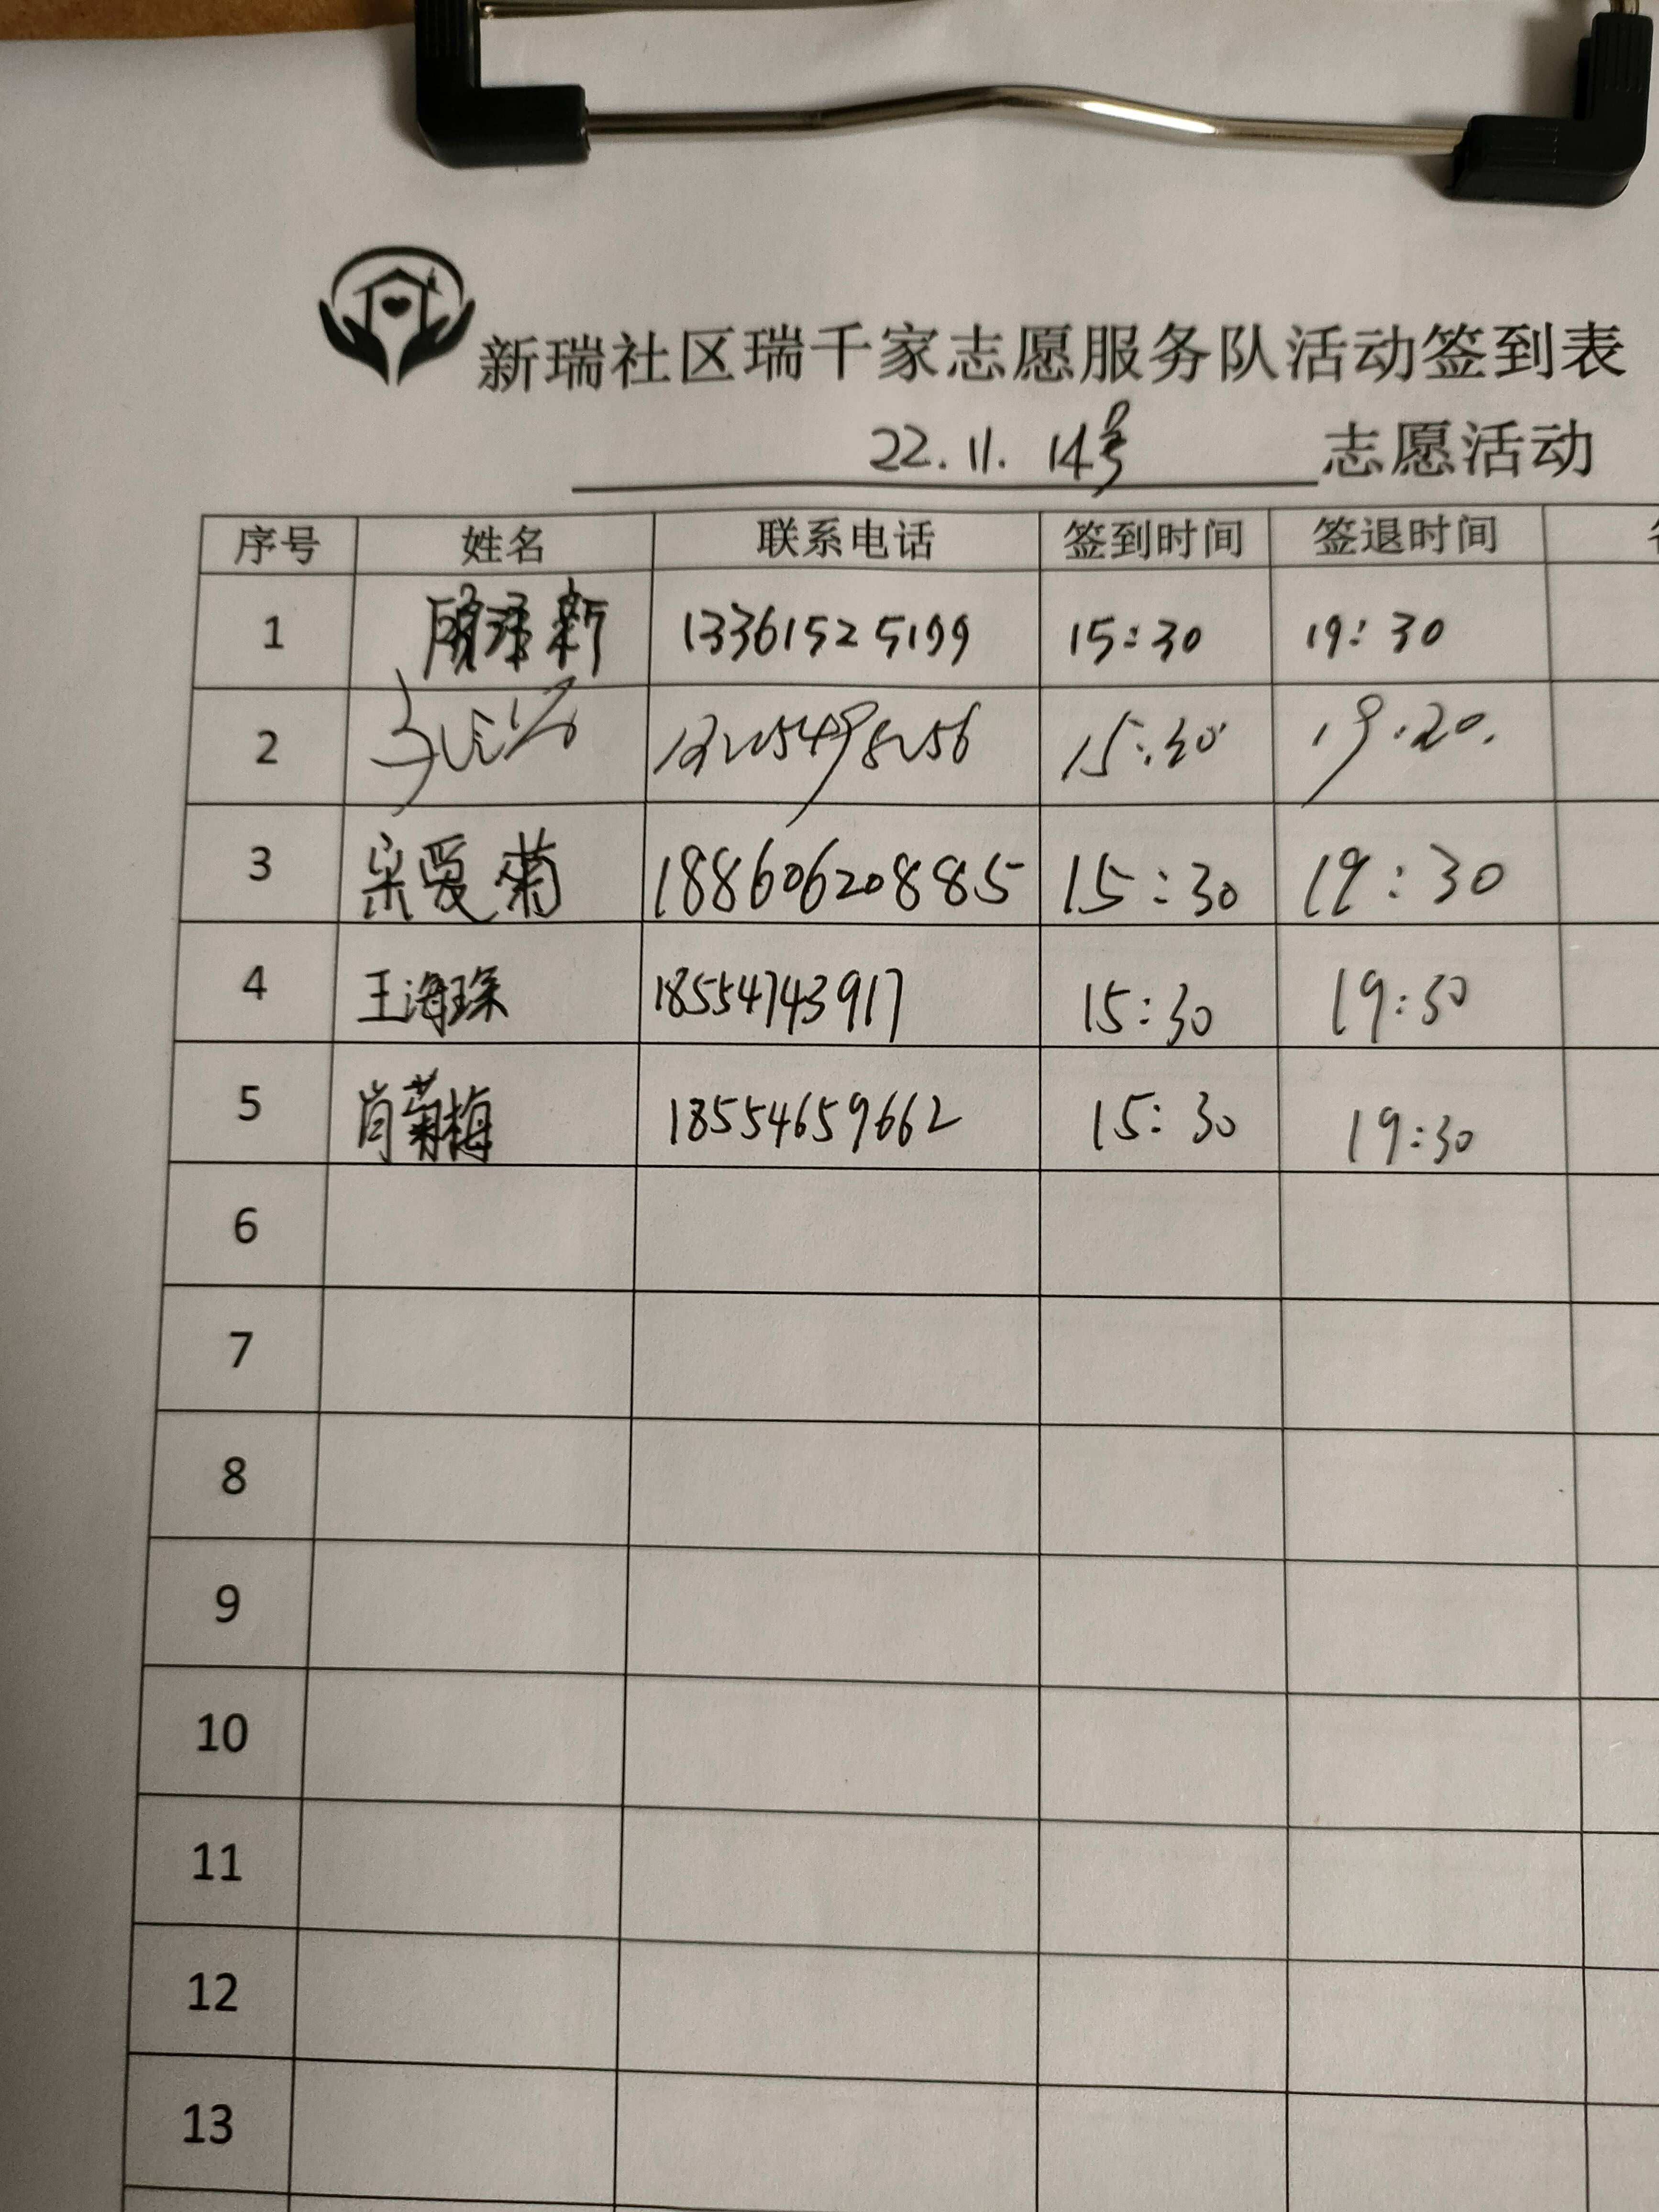 新瑞社区瑞千家志愿服务队活动签到表
22.11.14号 志愿活动
序号 姓名 联系电话 签到时间 签退时间
1 13361525199 15:30 19:30
2 15:30 19.20.
3 宋爱菊 18860620885 15:30 19:30
4 王海琛 18554743917 15:30 19:30
5 肖菊梅 18554659662 15:30 19:30
6
7
8
9
10
11
12
13